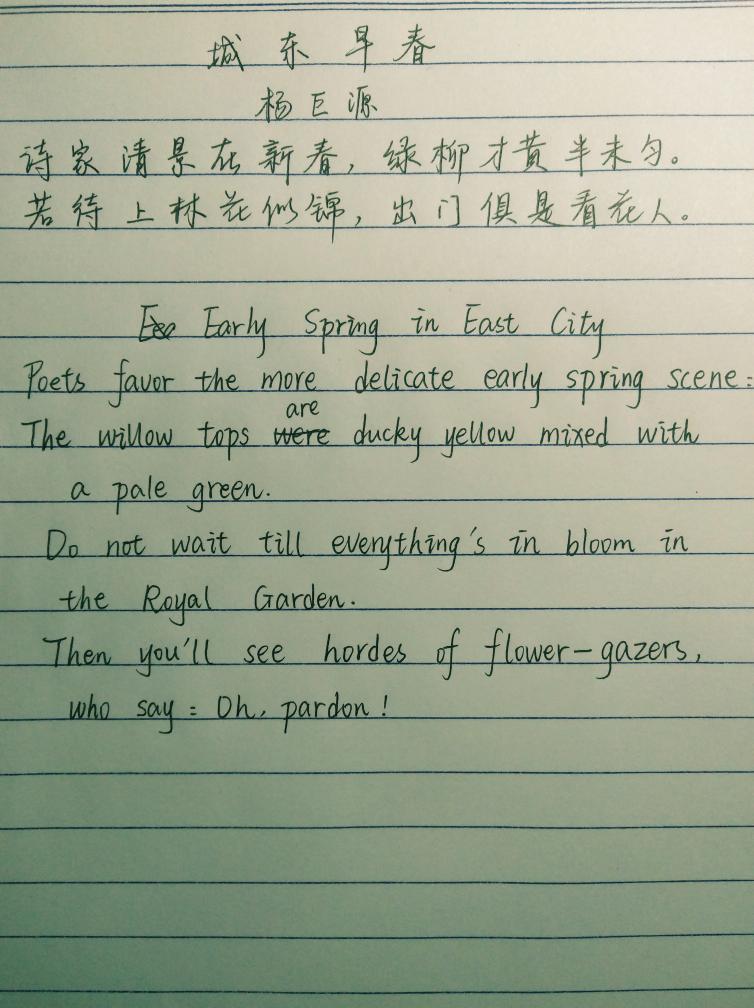 城东早春
杨巨源
诗家清景在新春，绿柳才黄半未匀。
若待上林花似锦，出门俱是看花人。
Early Spring in East City
Poets favor the more delicate early spring scene:
The willow tops are ducky yellow mixed with
a pale green.
Do not wait till everything's in bloom in
the Royal Garden.
Then you'll see hordes of flower-gazers,
who say: Oh, pardon!